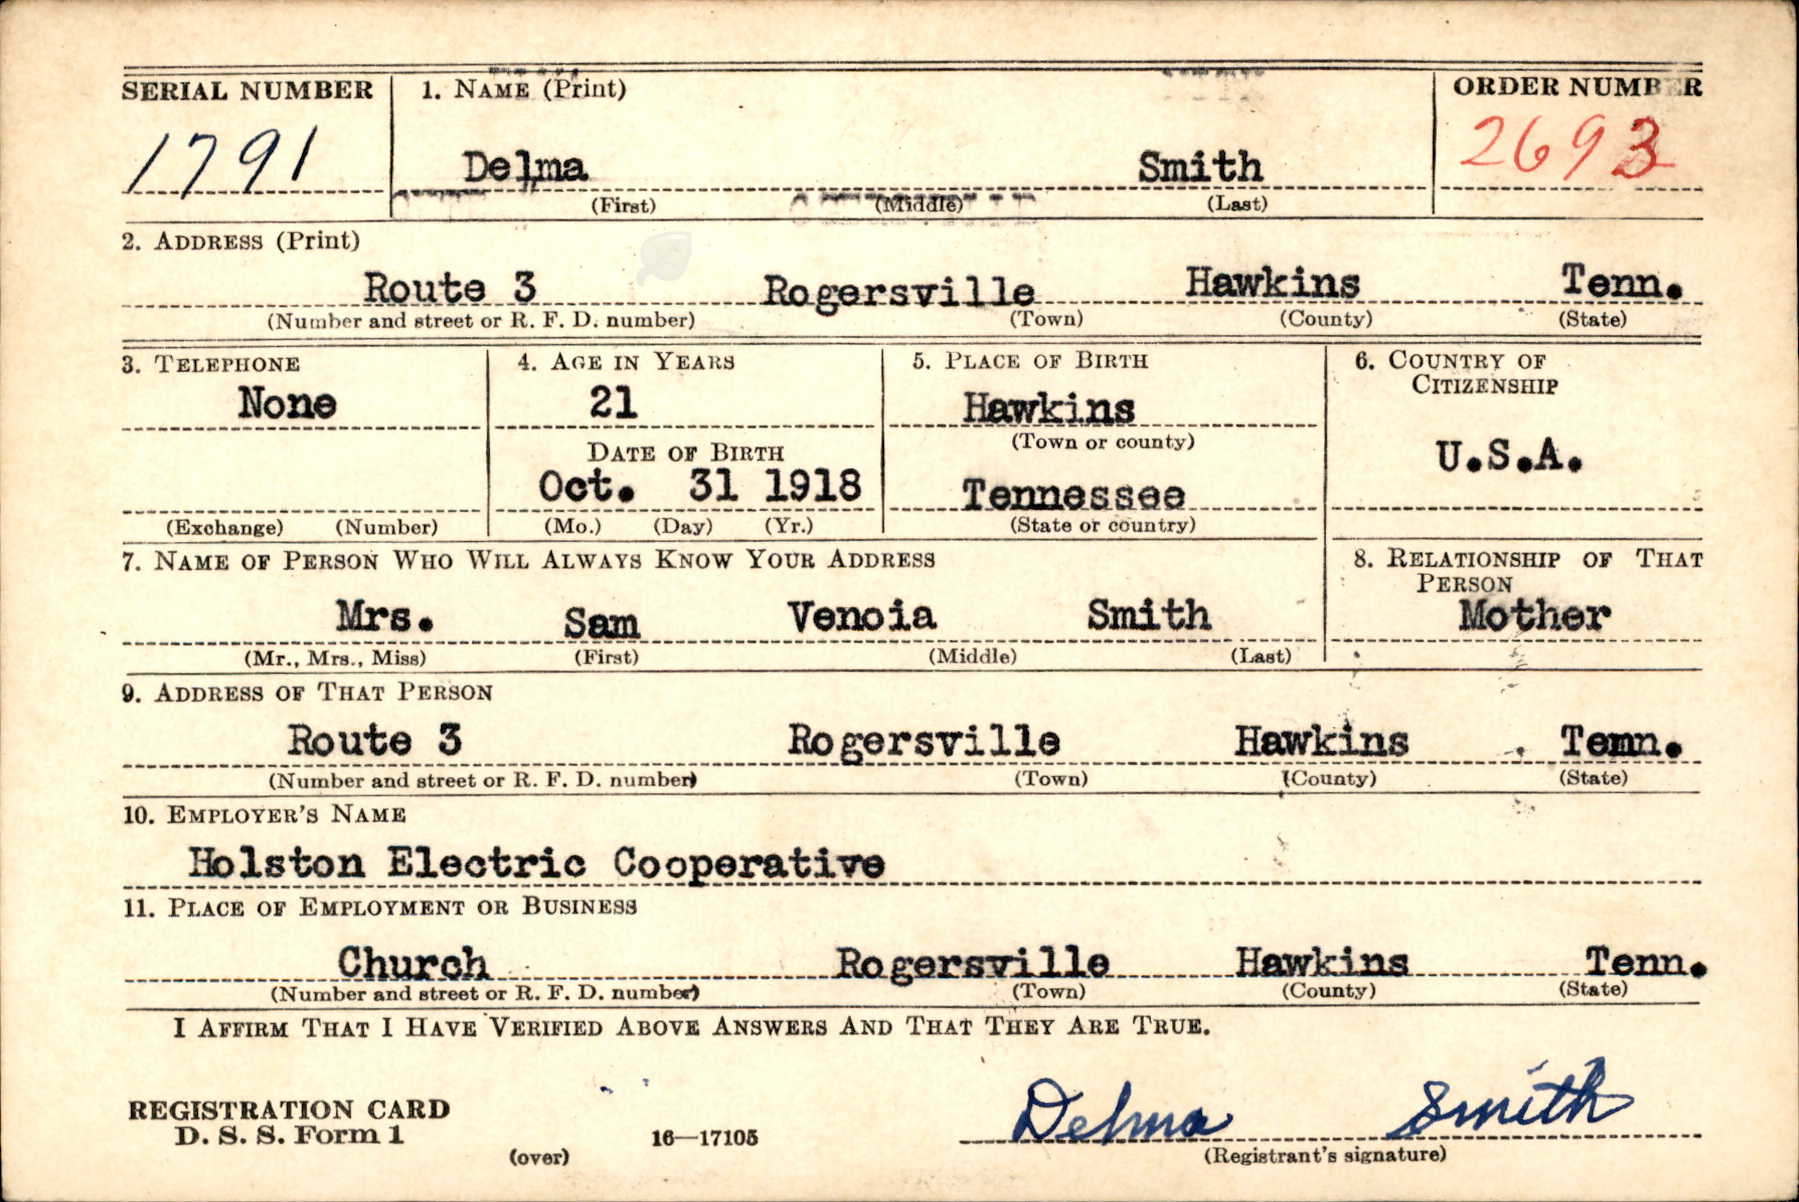 SERIAL NUMBER 1. NAME (Print) ORDER NUMBER
1791 Delma Smith 2693
(First) (Middle) (Last)
2. ADDRESS (Print)
Route 3 Rogersville Hawkins Tenn.
(Number and street or R. F. D. number) (Town) (County) (State)
3. TELEPHONE 4. AGE IN YEARS 5. PLACE OF BIRTH 6. COUNTRY OF
CITIZENSHIP
None 21 Hawkins
(Town or county)
DATE OF BIRTH U.S.A.
Oct. 31 1918 Tennessee
(Exchange) (Number) (Mo.) (Day) (Yr.) (State or country)
7. NAME OF PERSON WHO WILL ALWAYS KNOW YOUR ADDRESS 8. RELATIONSHIP OF THAT
PERSON
Mrs. Sam Venoia Smith Mother
(Mr., Mrs., Miss) (First) (Middle) (Last)
9. ADDRESS OF THAT PERSON
Route 3 Rogersville Hawkins Tenn.
(Number and street or R. F. D. number) (Town) (County) (State)
10. EMPLOYER'S NAME
Holston Electric Cooperative
11. PLACE OF EMPLOYMENT OR BUSINESS
Church Rogersville Hawkins Tenn.
(Number and street or R. F. D. number) (Town) (County) (State)
I AFFIRM THAT I HAVE VERIFIED ABOVE ANSWERS AND THAT THEY ARE TRUE.
REGISTRATION CARD
D. S. S. Form 1 16—17105 Delma Smith
(over) (Registrant's signature)